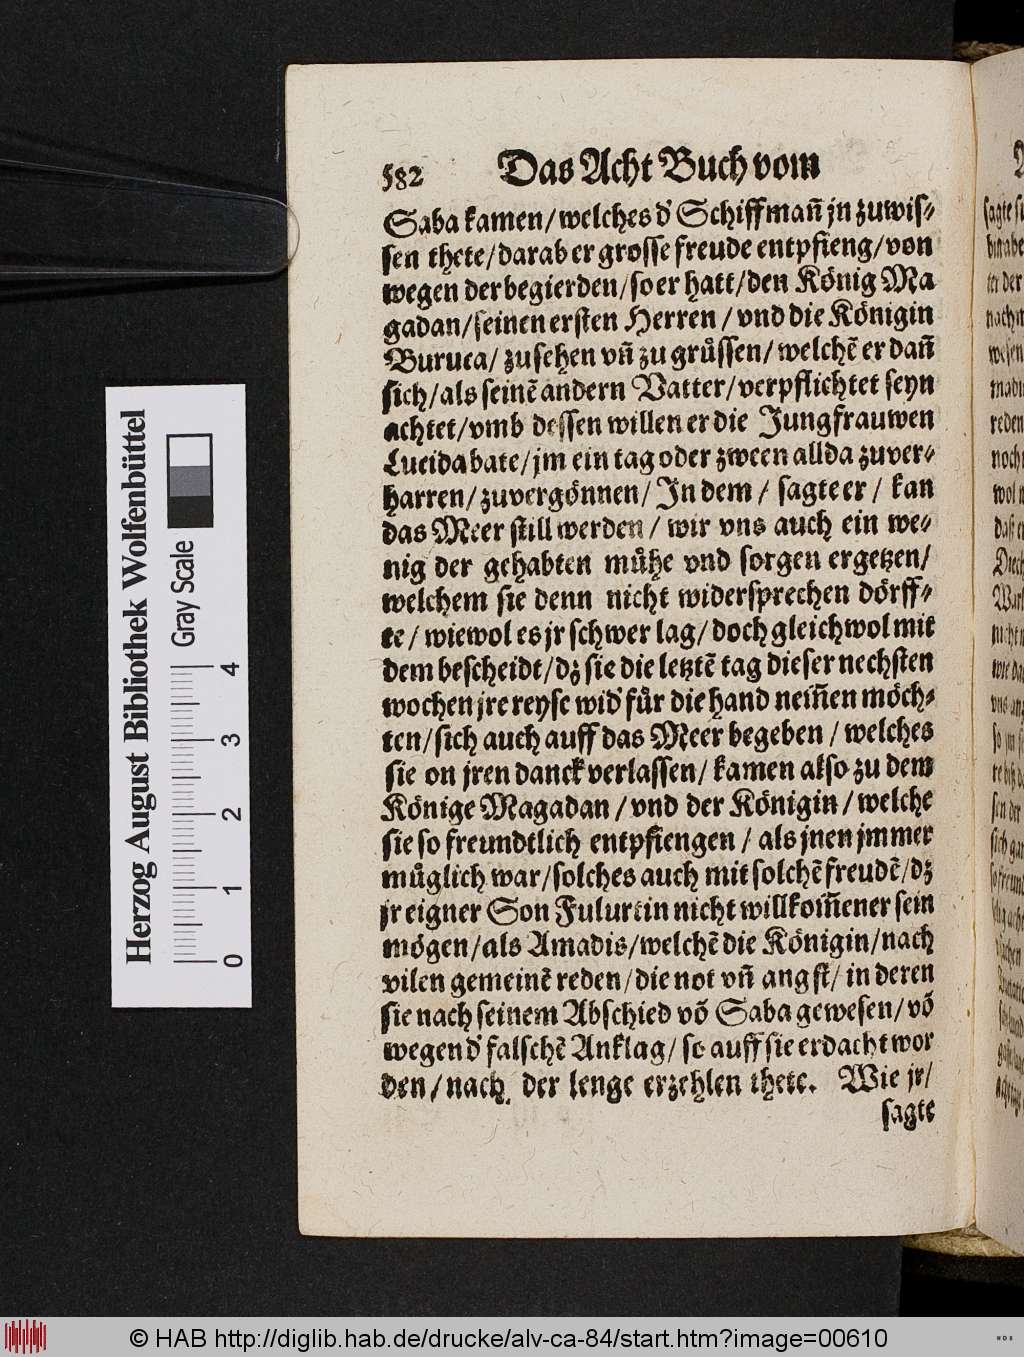 582 Das Acht Buch vom
Saba kamen/welches d' Schiffmañ jn zuwis-
sen thete/darab er grosse freude entpfieng/von
wegen der begierden/so er hatt/den König Ma
gadan/seinen ersten Herren/vnd die Königin
Buruca/zusehen vñ zu grůssen/welchẽ er dañ
sich/als seinẽ andern Vatter/verpflichtet seyn
achtet/vmb dessen willen er die Jungfrauwen
Lucida bate/jm ein tag oder zween allda zuver-
harren/zuvergönnen/In dem/sagte er/kan
das Meer still werden/wir vns auch ein we-
nig der gehabten můhe vnd sorgen ergetzen/
welchem sie denn nicht widersprechen dörff-
te/wiewol es jr schwer lag/doch gleichwol mit
dem bescheidt/dz sie die letztẽ tag dieser nechsten
wochen jre reyse wid' für die hand neim̃en möch-
ten/sich auch auff das Meer begeben/welches
sie on jren danck verlassen/kamen also zu dem
Könige Magadan/vnd der Königin/welche
sie so freundtlich entpfiengen/als jnen jmmer
můglich war/solches auch mit solchẽ freudẽ/dz
jr eigner Son Fulurtin nicht willkom̃ener sein
mögen/als Amadis/welchẽ die Königin/nach
vilen gemeinẽ reden/die not vñ angst/in deren
sie nach seinem Abschied võ Saba gewesen/võ
wegen d' falschẽ Anklag/so auff sie erdacht wor
den/nach der lenge erzehlen thete. Wie jr/
sagte
Herzog August Bibliothek Wolfenbüttel
Gray Scale
0 1 2 3 4
© HAB http://diglib.hab.de/drucke/alv-ca-84/start.htm?image=00610